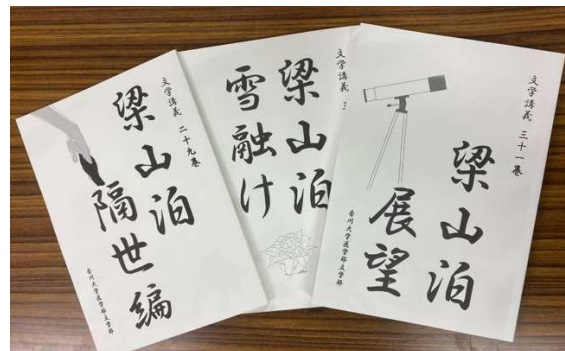 文学講義 二十九巻
梁山泊
隔世編
香川大学医学部文学部
文学講義 三
梁山泊
雪融け
文学講義 三十一巻
梁山泊
展望
香川大学医学部文学部